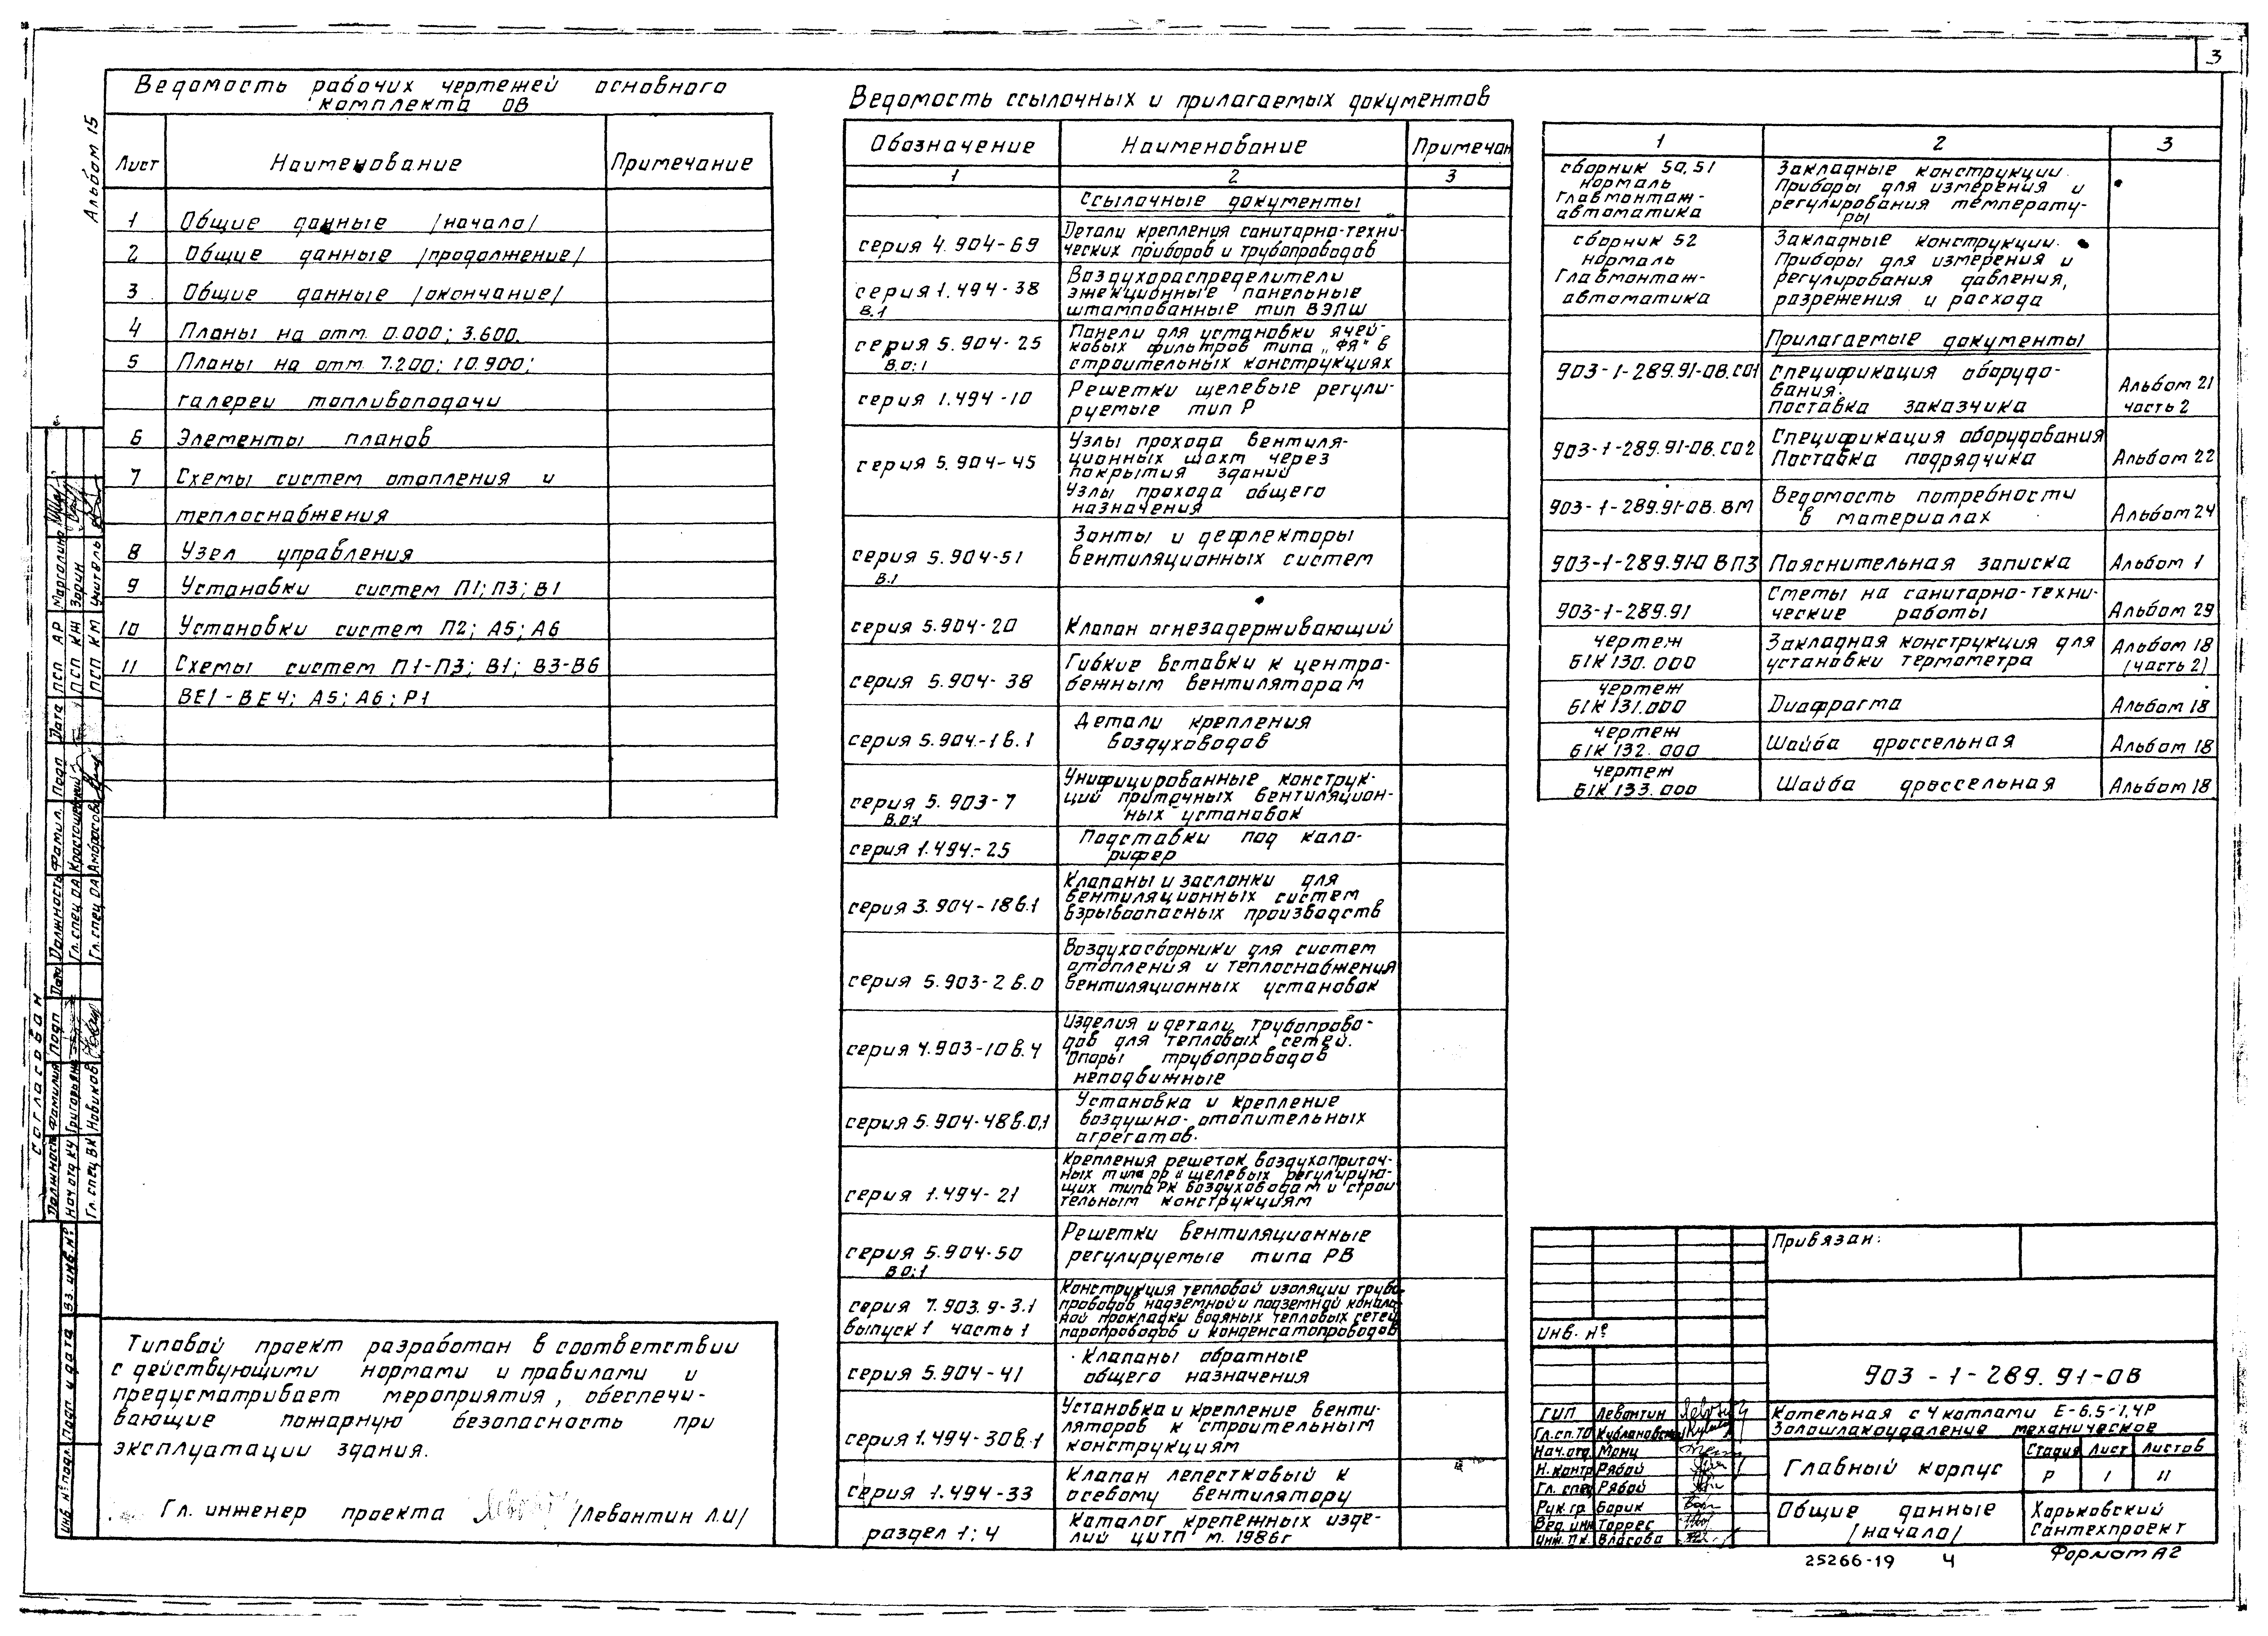 3
Альбом 15
Ведомость рабочих чертежей основного
комплекта ОВ
Лист Наименование Примечание
1 Общие данные /начало/
2 Общие данные /продолжение/
3 Общие данные /окончание/
4 Планы на отм. 0.000; 3.600.
5 Планы на отм. 7.200; 10.900;
галереи топливоподачи
6 Элементы планов
7 Схемы систем отопления и
теплоснабжения
8 Узел управления
9 Установки систем П1; П3; В1
10 Установки систем П2; А5; А6
11 Схемы систем П1-П3; В1; В3-В6
ВЕ1-ВЕ4; А5; А6; Р1
Типовой проект разработан в соответствии
с действующими нормами и правилами и
предусматривает мероприятия, обеспечи-
вающие пожарную безопасность при
эксплуатации здания.
Гл. инженер проекта /Левантин Л.И/
Ведомость ссылочных и прилагаемых документов
Обозначение Наименование Примечан
1 2 3
Ссылочные документы
серия 4.904-69 Детали крепления санитарно-техни-
ческих приборов и трубопроводов
серия 1.494-38 В.1 Воздухораспределители
эжекционные панельные
штампованные тип ВЭПШ
серия 5.904-25 В.0;1 Панели для установки ячей-
ковых фильтров типа „ФЯ" в
строительных конструкциях
серия 1.494-10 Решетки щелевые регули-
руемые тип Р
серия 5.904-45 Узлы прохода вентиля-
ционных шахт через
покрытия зданий
Узлы прохода общего
назначения
серия 5.904-51 В.1 Зонты и дефлекторы
вентиляционных систем
серия 5.904-20 Клапан огнезадерживающий
серия 5.904-38 Гибкие вставки к центро-
бежным вентиляторам
серия 5.904-1 в.1 Детали крепления
воздуховодов
серия 5.903-7 В.0;1 Унифицированные конструк-
ций приточных вентиляцион-
ных установок
серия 1.494-25 Подставки под кало-
рифер
серия 3.904-18 в.1 Клапаны и заслонки для
вентиляционных систем
взрывоопасных производств
серия 5.903-2 в.0 Воздухосборники для систем
отопления и теплоснабжения
вентиляционных установок
серия 4.903-10 в.4 Изделия и детали трубопрово-
дов для тепловых сетей.
Опоры трубопроводов
неподвижные
серия 5.904-48 в.0,1 Установка и крепление
воздушно-отопительных
агрегатов.
серия 1.494-21 Крепления решеток воздухоприточ-
ных типа РР и щелевых регулирую-
щих типа РК воздуховодам и строи
тельным конструкциям
серия 5.904-50 В 0;1 Решетки вентиляционные
регулируемые типа РВ
серия 7.903.9-3.1 Конструкция тепловой изоляции трубо-
проводов надземной и подземной каналь-
выпуск 1 часть 1 ной прокладки водяных тепловых сетей
паропроводов и конденсатопроводов
серия 5.904-41 Клапаны обратные
общего назначения
серия 1.494-30 в.1 Установка и крепление венти-
ляторов к строительным
конструкциям
серия 1.494-33 Клапан лепестковый к
осевому вентилятору
раздел 1; 4 Каталог крепежных изде-
лий ЦИТП м. 1986г
1 2 3
сборник 50,51 Закладные конструкции.
нормаль Приборы для измерения и
Главмонтаж- регулирования температу-
автоматика ры
сборник 52 Закладные конструкции.
нормаль Приборы для измерения и
Главмонтаж- регулирования давления,
автоматика разрежения и расхода
Прилагаемые документы
903-1-289.91-ОВ.СО1 Спецификация оборудо-
вания. Альбом 21
Поставка заказчика часть 2
903-1-289.91-ОВ.СО2 Спецификация оборудования
Поставка подрядчика Альбом 22
903-1-289.91-ОВ.ВМ Ведомость потребности
в материалах Альбом 24
903-1-289.91-ОВПЗ Пояснительная записка Альбом 1
903-1-289.91 Сметы на санитарно-техни-
ческие работы Альбом 29
чертеж Закладная конструкция для Альбом 18
Б1К 130.000 установки термометра (часть 2)
чертеж
Б1К 131.000 Диафрагма Альбом 18
чертеж
Б1К 132.000 Шайба дроссельная Альбом 18
чертеж
Б1К 133.000 Шайба дроссельная Альбом 18
Привязан:
Инв. №
903-1-289.91-ОВ
ГИП Левантин
Гл.сп.ТО Кублановский
Нач.отд. Монц
Н.контр Рябой
Гл. спец Рябой
Рук.гр. Борик
Вед.инж Торрес
Инж. Пк. Власова
Котельная с 4 котлами Е-6,5-1,4Р
Золошлакоудаление механическое
Главный корпус
Стадия Лист Листов
Р 1 11
Общие данные
/начало/
Харьковский
Сантехпроект
25266-19 4 Формат А2
Согласован
Должность Фамилия Подп Дата Должность Фамил. Подп Дата
Нач отд КУ Григорьянц Гл.спец ОА ПСП АР Марголина
Гл.спец ВК Новиков Гл.спец ОА Амбрасова ПСП КЖ Зорин
ПСП КМ Учитель
Инв. № подл. Подп и дата Вз. инв. №